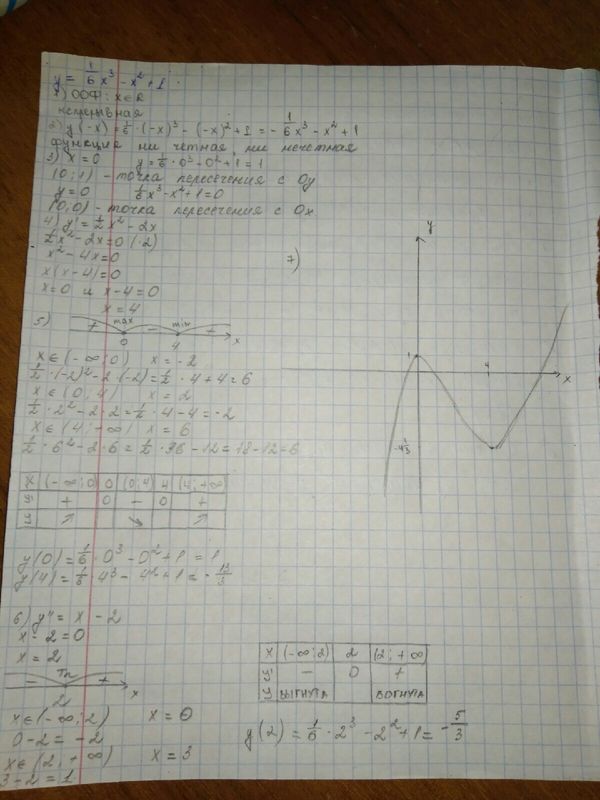 y = 1/6 x³ - x² + 1
1) ООФ: x ∈ R
непрерывная
2) y(-x) = 1/6 · (-x)³ - (-x)² + 1 = - 1/6 x³ - x² + 1
функция ни четная, ни нечетная
3) x = 0 y = 1/6 · 0³ + 0² + 1 = 1
(0; 1) - точка пересечения с Oy
y = 0 1/6 x³ - x² + 1 = 0
(0; 0) - точка пересечения с Ox
4) y' = 1/2 x² - 2x
1/2 x² - 2x = 0 (·2)
x² - 4x = 0
x(x - 4) = 0
x = 0 и x - 4 = 0
x = 4
5) + max - min + x
0 4
x ∈ (-∞; 0) x = -2
1/2 · (-2)² - 2 · (-2) = 1/2 · 4 + 4 = 6
x ∈ (0; 4) x = 2
1/2 · 2² - 2 · 2 = 1/2 · 4 - 4 = -2
x ∈ (4; -∞) x = 6
1/2 · 6² - 2 · 6 = 1/2 · 36 - 12 = 18 - 12 = 6
x (-∞; 0) 0 (0; 4) 4 (4; +∞
y' + 0 - 0 +
y ↗ ↘ ↗
y(0) = 1/6 · 0³ - 0² + 1 = 1
y(4) = 1/6 · 4³ - 4² + 1 = - 13/3
6) y'' = x - 2
x - 2 = 0
x = 2
- Тп + x
2
x ∈ (-∞; 2) x = 0
0 - 2 = -2
x ∈ (2; +∞) x = 3
3 - 2 = 1
7)
y
1
4 x
-4 1/3
x (-∞; 2) 2 (2; +∞)
y' - 0 +
y ВЫГНУТА ВОГНУТА
y(2) = 1/6 · 2³ - 2² + 1 = - 5/3